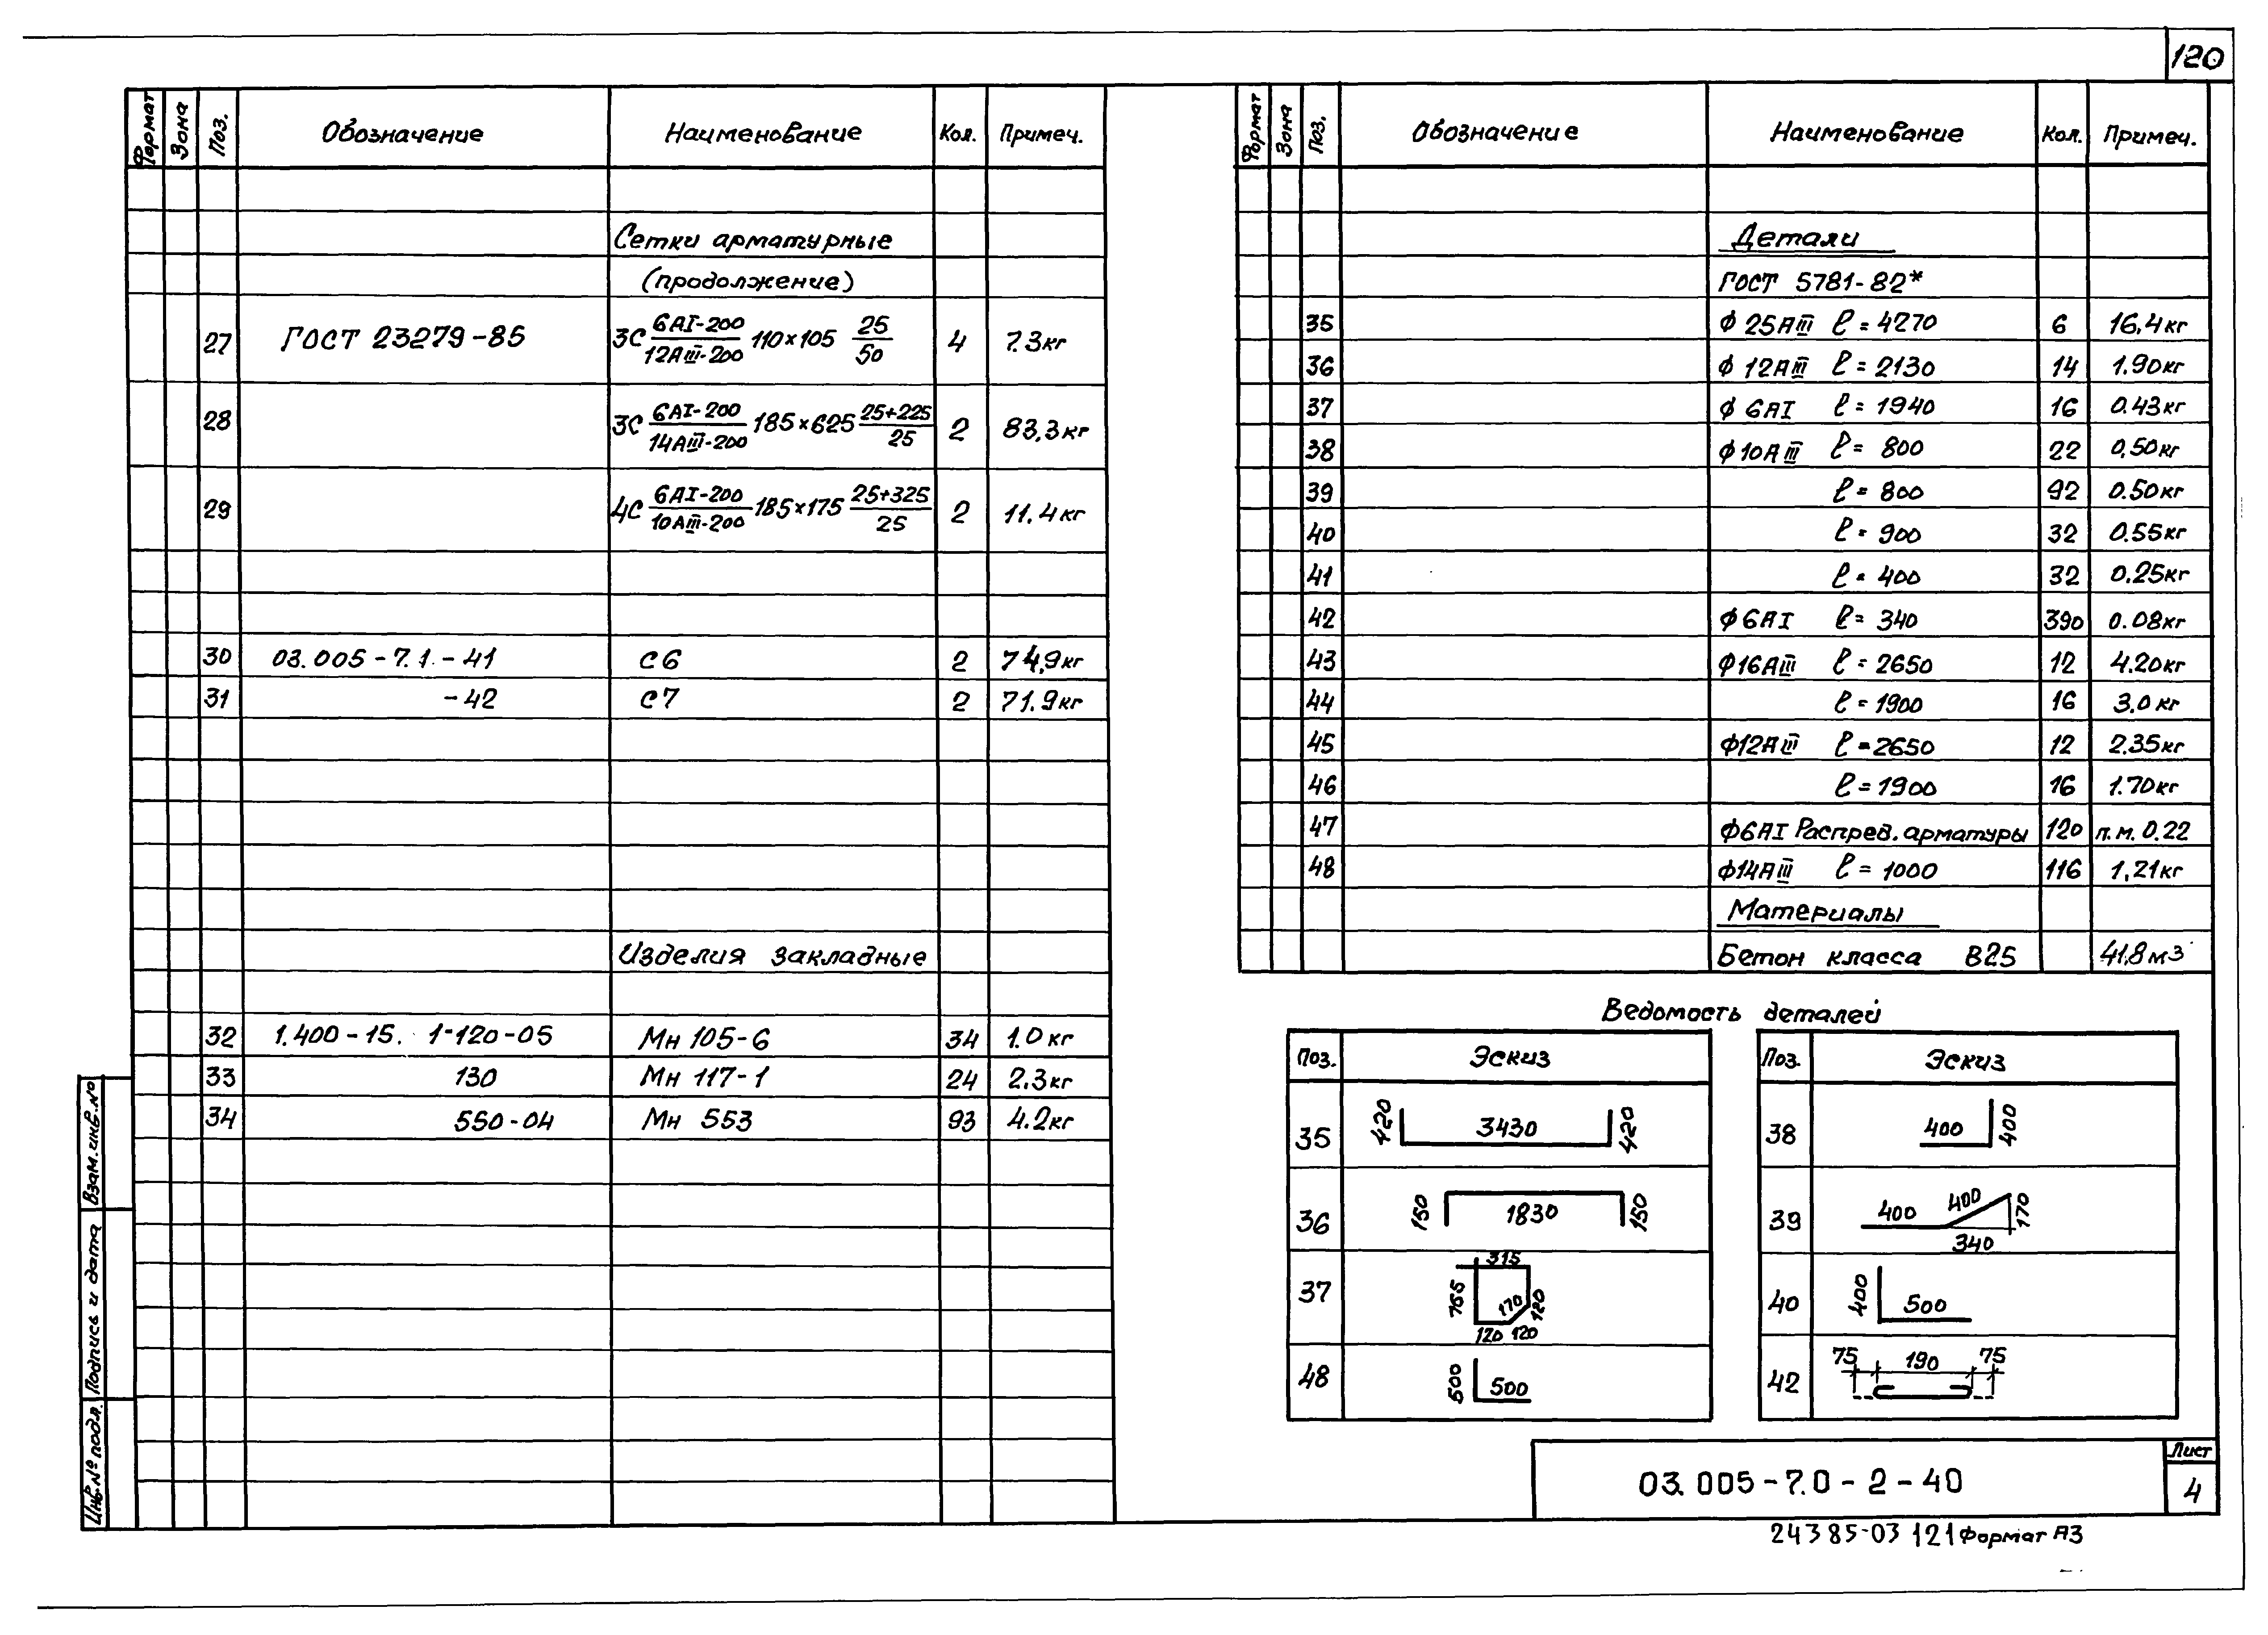 120
Формат Зона Поз. Обозначение Наименование Кол. Примеч.
Сетки арматурные
(продолжение)
27 ГОСТ 23279-85 3С 6АI-200/12АIII-200 110×105 25/50 4 7.3кг
28 3С 6АI-200/14АIII-200 185×625 25+225/25 2 83,3кг
29 4С 6АI-200/10АIII-200 185×175 25+325/25 2 11.4кг
30 03.005-7.1.-41 С6 2 74,9кг
31 -42 С7 2 71.9кг
Изделия закладные
32 1.400-15. 1-120-05 Мн 105-6 34 1.0кг
33 130 Мн 117-1 24 2.3кг
34 550-04 Мн 553 93 4.2кг
Формат Зона Поз. Обозначение Наименование Кол. Примеч.
Детали
ГОСТ 5781-82*
35 ф 25АIII ℓ=4270 6 16,4кг
36 ф 12АIII ℓ=2130 14 1.90кг
37 ф 6АI ℓ=1940 16 0.43кг
38 ф10АIII ℓ=800 22 0,50кг
39 ℓ=800 92 0.50кг
40 ℓ=900 32 0.55кг
41 ℓ=400 32 0.25кг
42 ф6АI ℓ=340 390 0.08кг
43 ф16АIII ℓ=2650 12 4.20кг
44 ℓ=1900 16 3.0кг
45 ф12АIII ℓ=2650 12 2.35кг
46 ℓ=1900 16 1.70кг
47 ф6АI Распред. арматуры 120 п.м. 0.22
48 ф14АIII ℓ=1000 116 1,21кг
Материалы
Бетон класса В25 41.8м3
Ведомость деталей
Поз. Эскиз
35 420 3430 420
36 150 1830 150
37 315 765 170 120 120 120
48 500 500
Поз. Эскиз
38 400 400
39 400 400 170 340
40 400 500
42 75 190 75
Взам.инв.№
Подпись и дата
Инв.№ подл.
03.005-7.0-2-40
Лист
4
24385-03 121 Формат А3